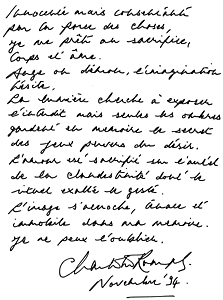 Innocente mais consentante
par la force des choses,
je me prête au sacrifice,
Corps et âme.
Ange ou démon, l'imagination
hésite.
La lumière cherche à exposer
l'interdit mais seules les ombres
gardent en mémoire le secret
des jeux pervers du désir.
L'amour est sacrifié sur l'autel
de la clandestinité dont le
rituel exalte le geste.
L'image s'accroche, tenace et
immobile dans ma mémoire.
Je ne peux l'oublier.
Novembre 94.